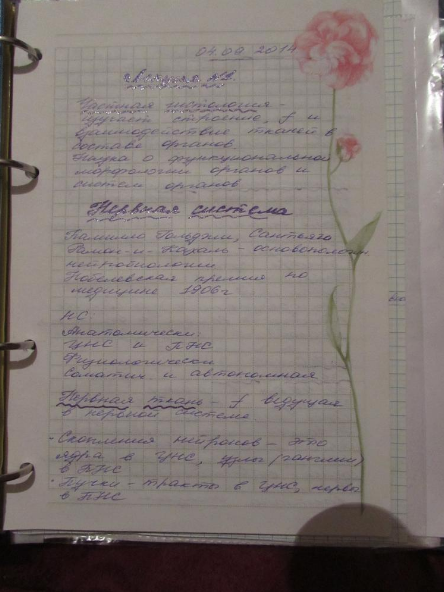 04.09.2014
Лекция №1.
Частная гистология -
изучает строение, f и
взаимодействие тканей в
составе органов.
Наука о функциональной
морфологии органов и
систем органов
Нервная система
Камилло Гольджи, Сантьяго
Рамон-и-Кахаль - основоположн
нейробиологии
Нобелевская премия по
медицине 1906г
НС:
Анатомически:
ЦНС и ПНС.
Физиологически
соматич. и автономная
Нервная ткань - f ведущая
в нервной системе
- Скопления нейронов - это
ядра в ЦНС, узлы (ганглии)
в ПНС
- Пучки - тракты в ЦНС, нервы
в ПНС